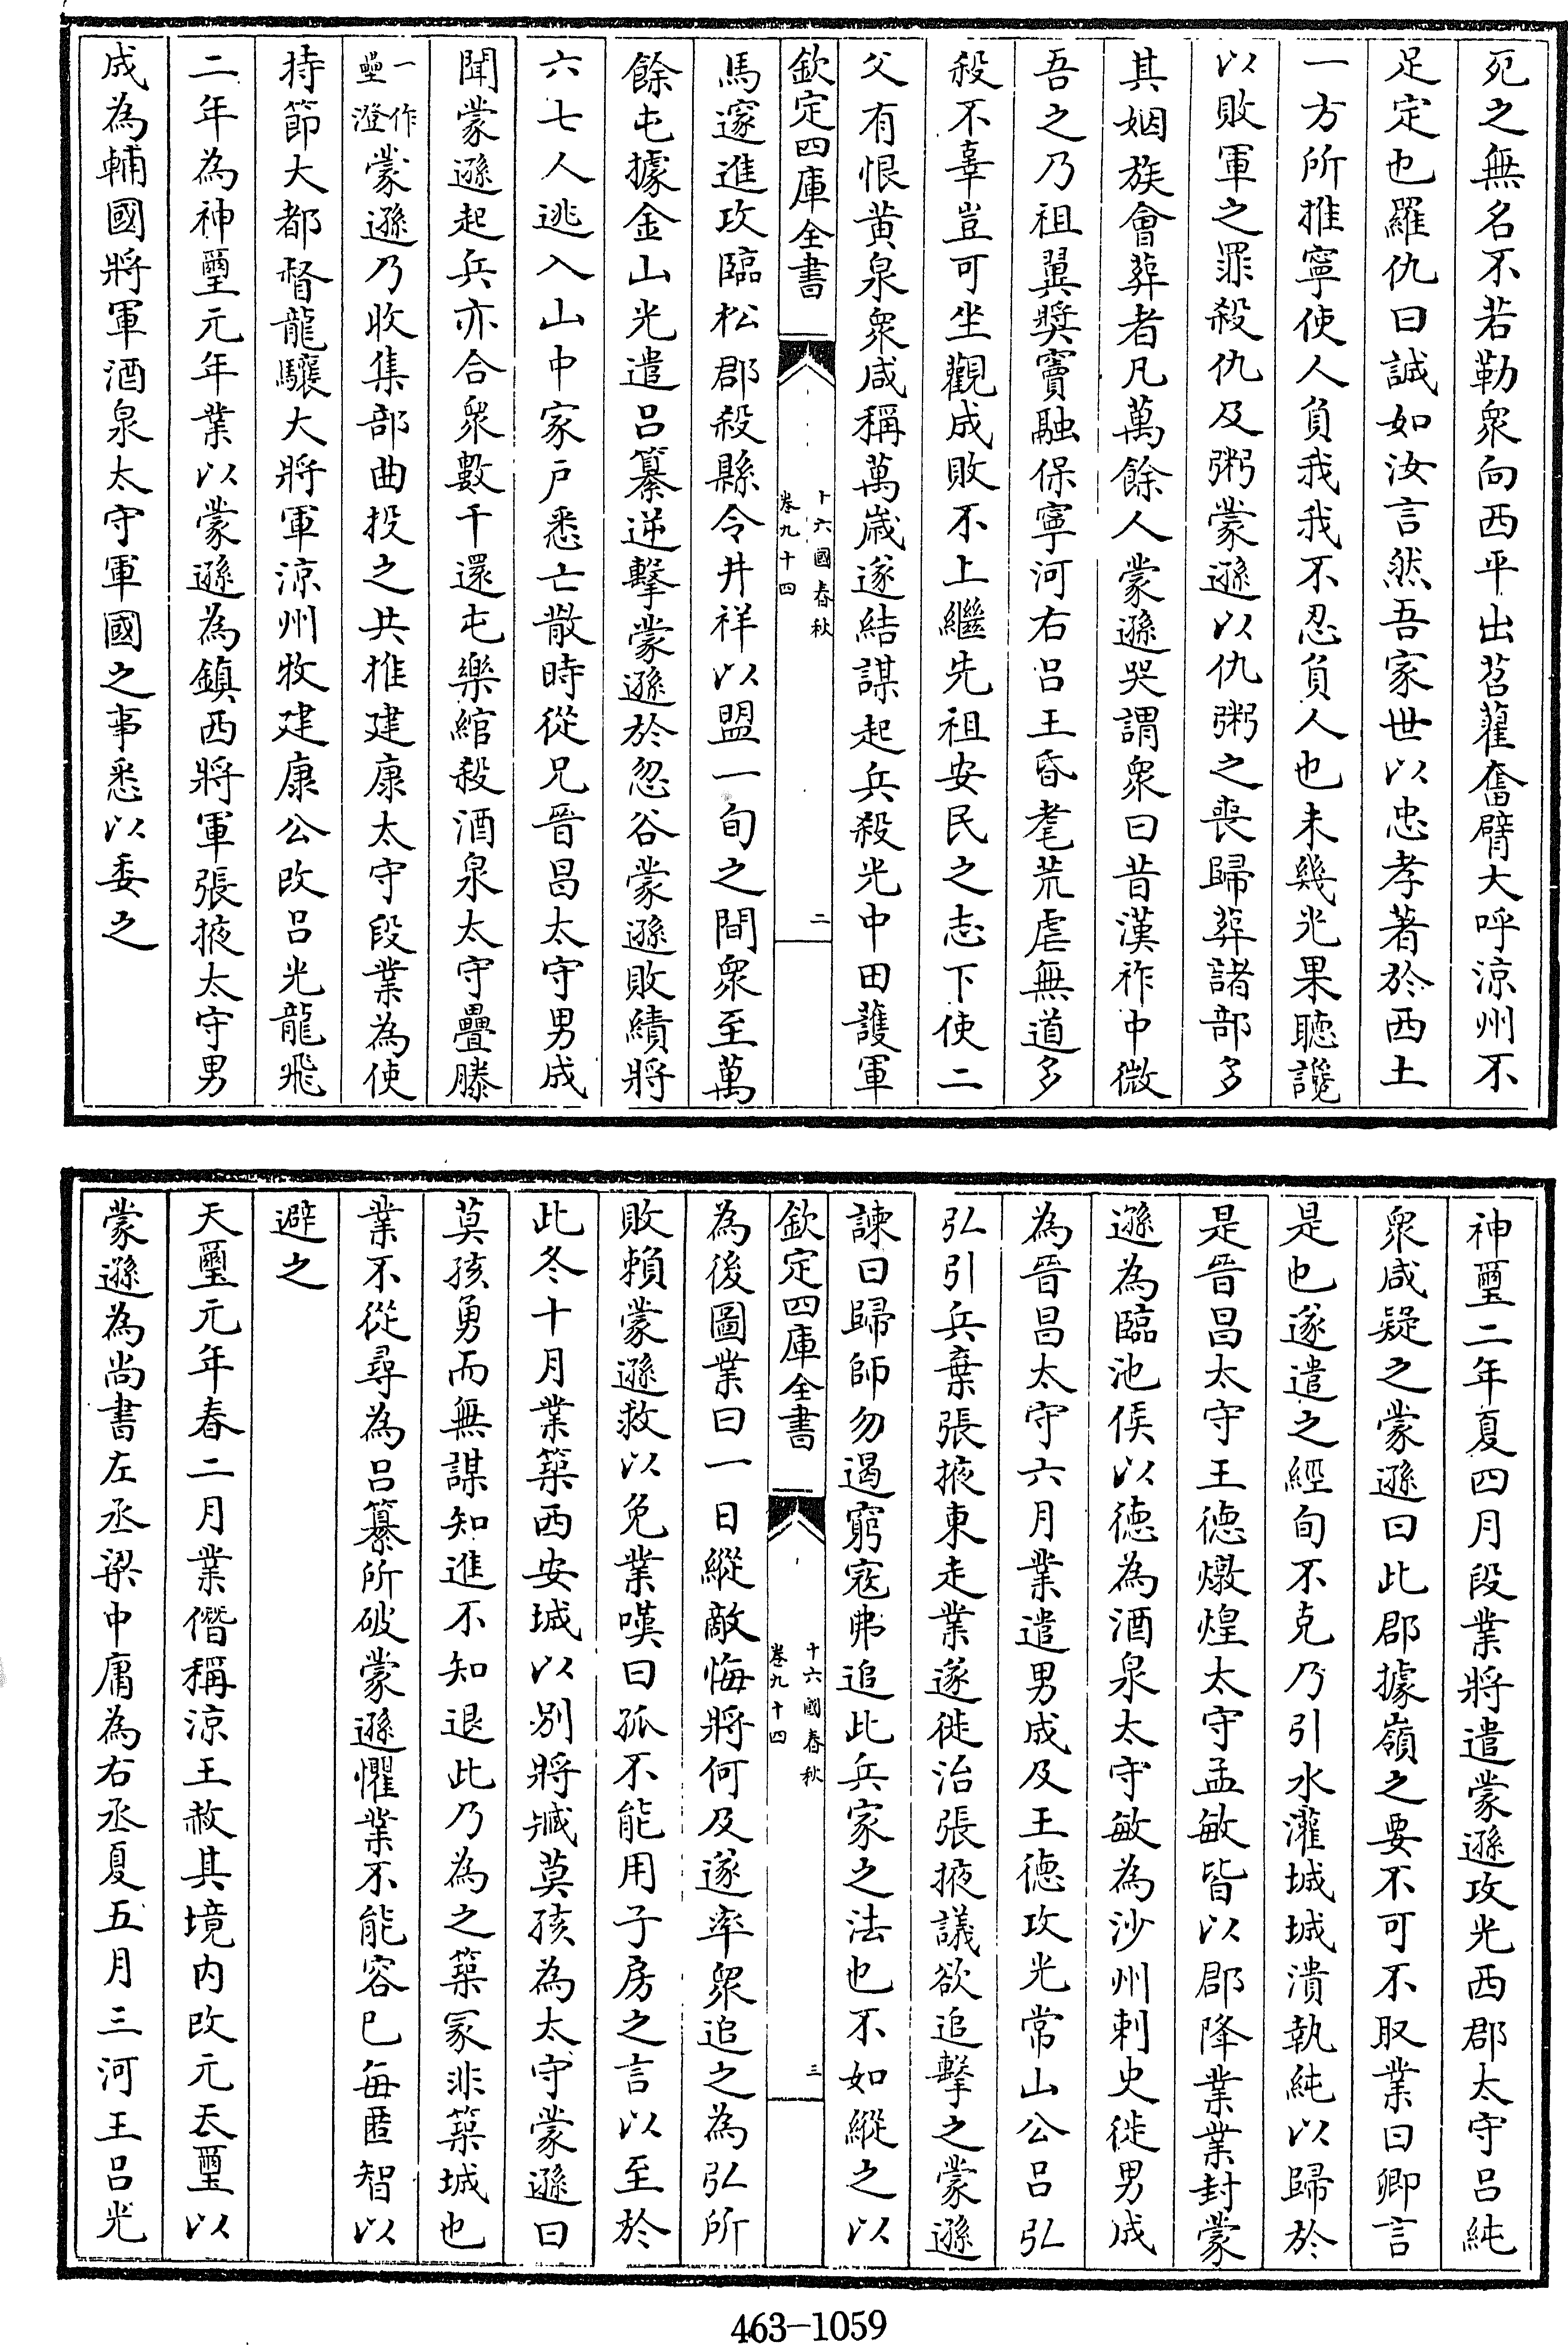 死之無名不若勒衆向西平出苕藋奮臂大呼涼州不
足定也羅仇曰誠如汝言然吾家世以忠孝著於西土
一方所推寧使人負我我不忍負人也未幾光果聽讒
以敗軍之罪殺仇及粥蒙遜以仇粥之喪歸葬諸部多
其姻族會葬者凡萬餘人蒙遜哭謂衆曰昔漢祚中微
吾之乃祖翼奬竇融保寧河右吕王昏耄荒虐無道多
殺不辜豈可坐觀成敗不上繼先祖安民之志下使二
父有恨黄泉衆咸稱萬歳遂結謀起兵殺光中田護軍
欽定四庫全書
十六國春秋
卷九十四
二
馬邃進攻臨松郡殺縣令井祥以盟一旬之間衆至萬
餘屯據金山光遣吕纂逆擊蒙遜於忽谷蒙遜敗績將
六七人逃入山中家戸悉亡散時從兄晉昌太守男成
聞蒙遜起兵亦合衆數千還屯樂綰殺酒泉太守疊滕
一作
壘澄
蒙遜乃收集部曲投之共推建康太守段業為使
持節大都督龍驤大將軍涼州牧建康公改吕光龍飛
二年為神璽元年業以蒙遜為鎮西將軍張掖太守男
成為輔國將軍酒泉太守軍國之事悉以委之
神璽二年夏四月段業將遣蒙遜攻光西郡太守吕純
衆咸疑之蒙遜曰此郡據嶺之要不可不取業曰卿言
是也遂遣之經旬不克乃引水灌城城潰執純以歸於
是晉昌太守王徳燉煌太守孟敏皆以郡降業業封蒙
遜為臨池侯以徳為酒泉太守敏為沙州刺史徙男成
為晉昌太守六月業遣男成及王徳攻光常山公吕弘
弘引兵棄張掖東走業遂徙治張掖議欲追擊之蒙遜
諫曰歸師勿遏窮寇弗追此兵家之法也不如縱之以
欽定四庫全書
十六國春秋
卷九十四
三
為後圖業曰一日縱敵悔將何及遂率衆追之為弘所
敗賴蒙遜救以免業嘆曰孤不能用子房之言以至於
此冬十月業築西安城以别將臧莫孩為太守蒙遜曰
莫孩勇而無謀知進不知退此乃為之築冢非築城也
業不從尋為吕纂所破蒙遜懼業不能容已每匿智以
避之
天璽元年春二月業僭稱涼王赦其境内改元天璽以
蒙遜為尚書左丞梁中庸為右丞夏五月三河王吕光
463-1059